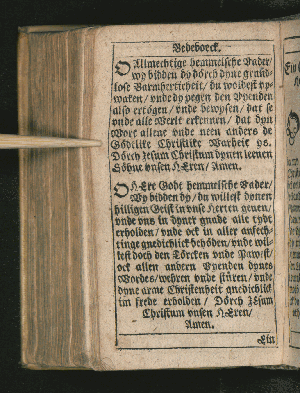 Bedeboeck.
O Allmechtige hemmelsche Vader/
wy bidden dy dörch dyne grund-
lose Barmherticheit/ du woldest vp-
waken/ vnde dy yegen den Vyenden
also ertögen/ vnde bewysen/ dat se
vnde alle Werlt erkennen/ dat dyn
Wort allene vnde neen anders de
Gödtlike Christlike Warheit ys.
Dörch Jesum Christum dynen leeuen
Söhne vnsen HEren/ Amen.
O HEre Godt hemmelsche Vader/
Wy bidden dy/ du willest dynen
hilligen Geist in vnse Herten geuen/
vnde vns in dyner gnade alle tydt
erholden/ vnde ock in aller anfech-
tinge gnedichlick behöden/ vnde wil-
lest doch den Törcken vnde Pawest/
ock allen andern Vyenden dynes
Wordes/ wehren vnde stüren/ vnde
dyne arme Christenheit gnedichlick
in frede erholden/ Dörch Jesum
Christum vnsen HEren/
Amen.
Ein